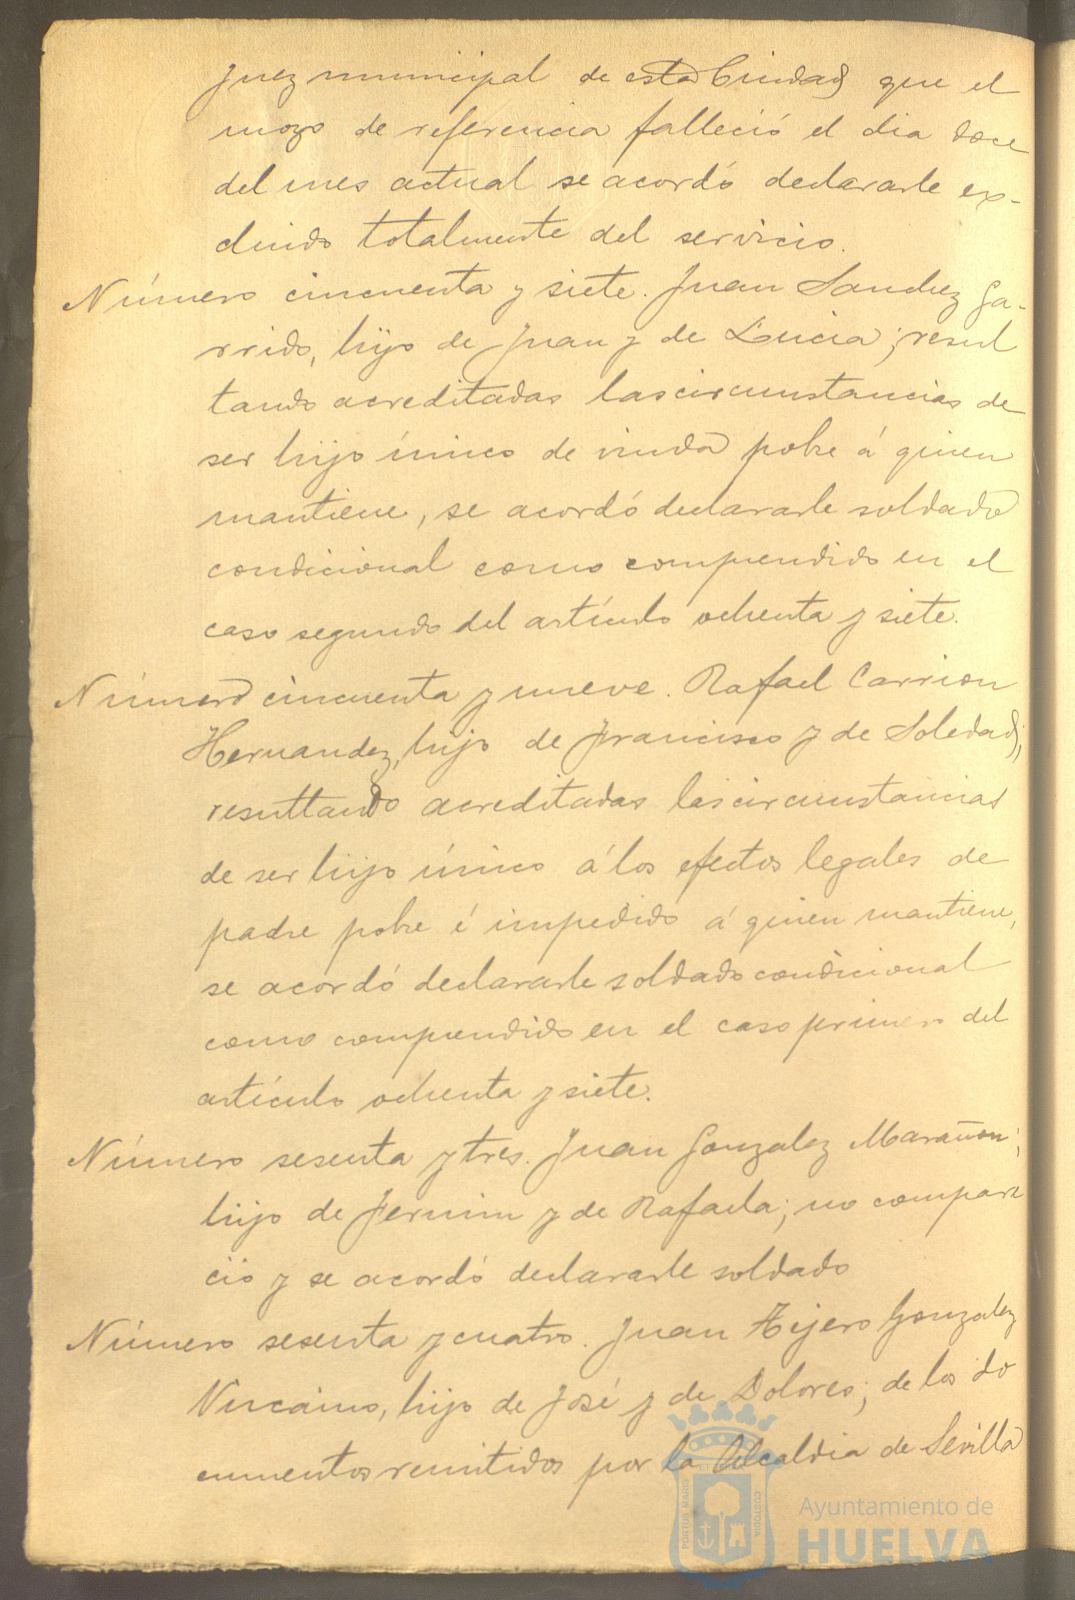 Juez municipal de esta Ciudad que el
mozo de referencia falleció el dia doce
del mes actual se acordó declararle ex-
cluido totalmente del servicio.
Número cincuenta y siete. Juan Sanchez Ga-
rrido, hijo de Juan y de Lucia; resul
tando acreditadas las circunstancias de
ser hijo único de viuda pobre á quien
mantiene, se acordó declararle soldado
condicional como comprendido en el
caso segundo del artículo ochenta y siete.
Número cincuenta y nueve. Rafael Carrion
Hernandez, hijo de Francisco y de Soledad;
resultando acreditadas las circunstancias
de ser hijo único á los efectos legales de
padre pobre é impedido á quien mantiene,
se acordó declararle soldado condicional
como comprendido en el caso primero del
artículo ochenta y siete.
Número sesenta y tres. Juan Gonzalez Marañon;
hijo de Fermin y de Rafaela; no compare
ció y se acordó declararle soldado
Número sesenta y cuatro. Juan Tejero Gonzalez
Vizcaino, hijo de José y de Dolores; de los do
cumentos remitidos por la Alcaldia de Sevilla
PORTUS MARIS
CUSTODIA
Ayuntamiento de
HUELVA